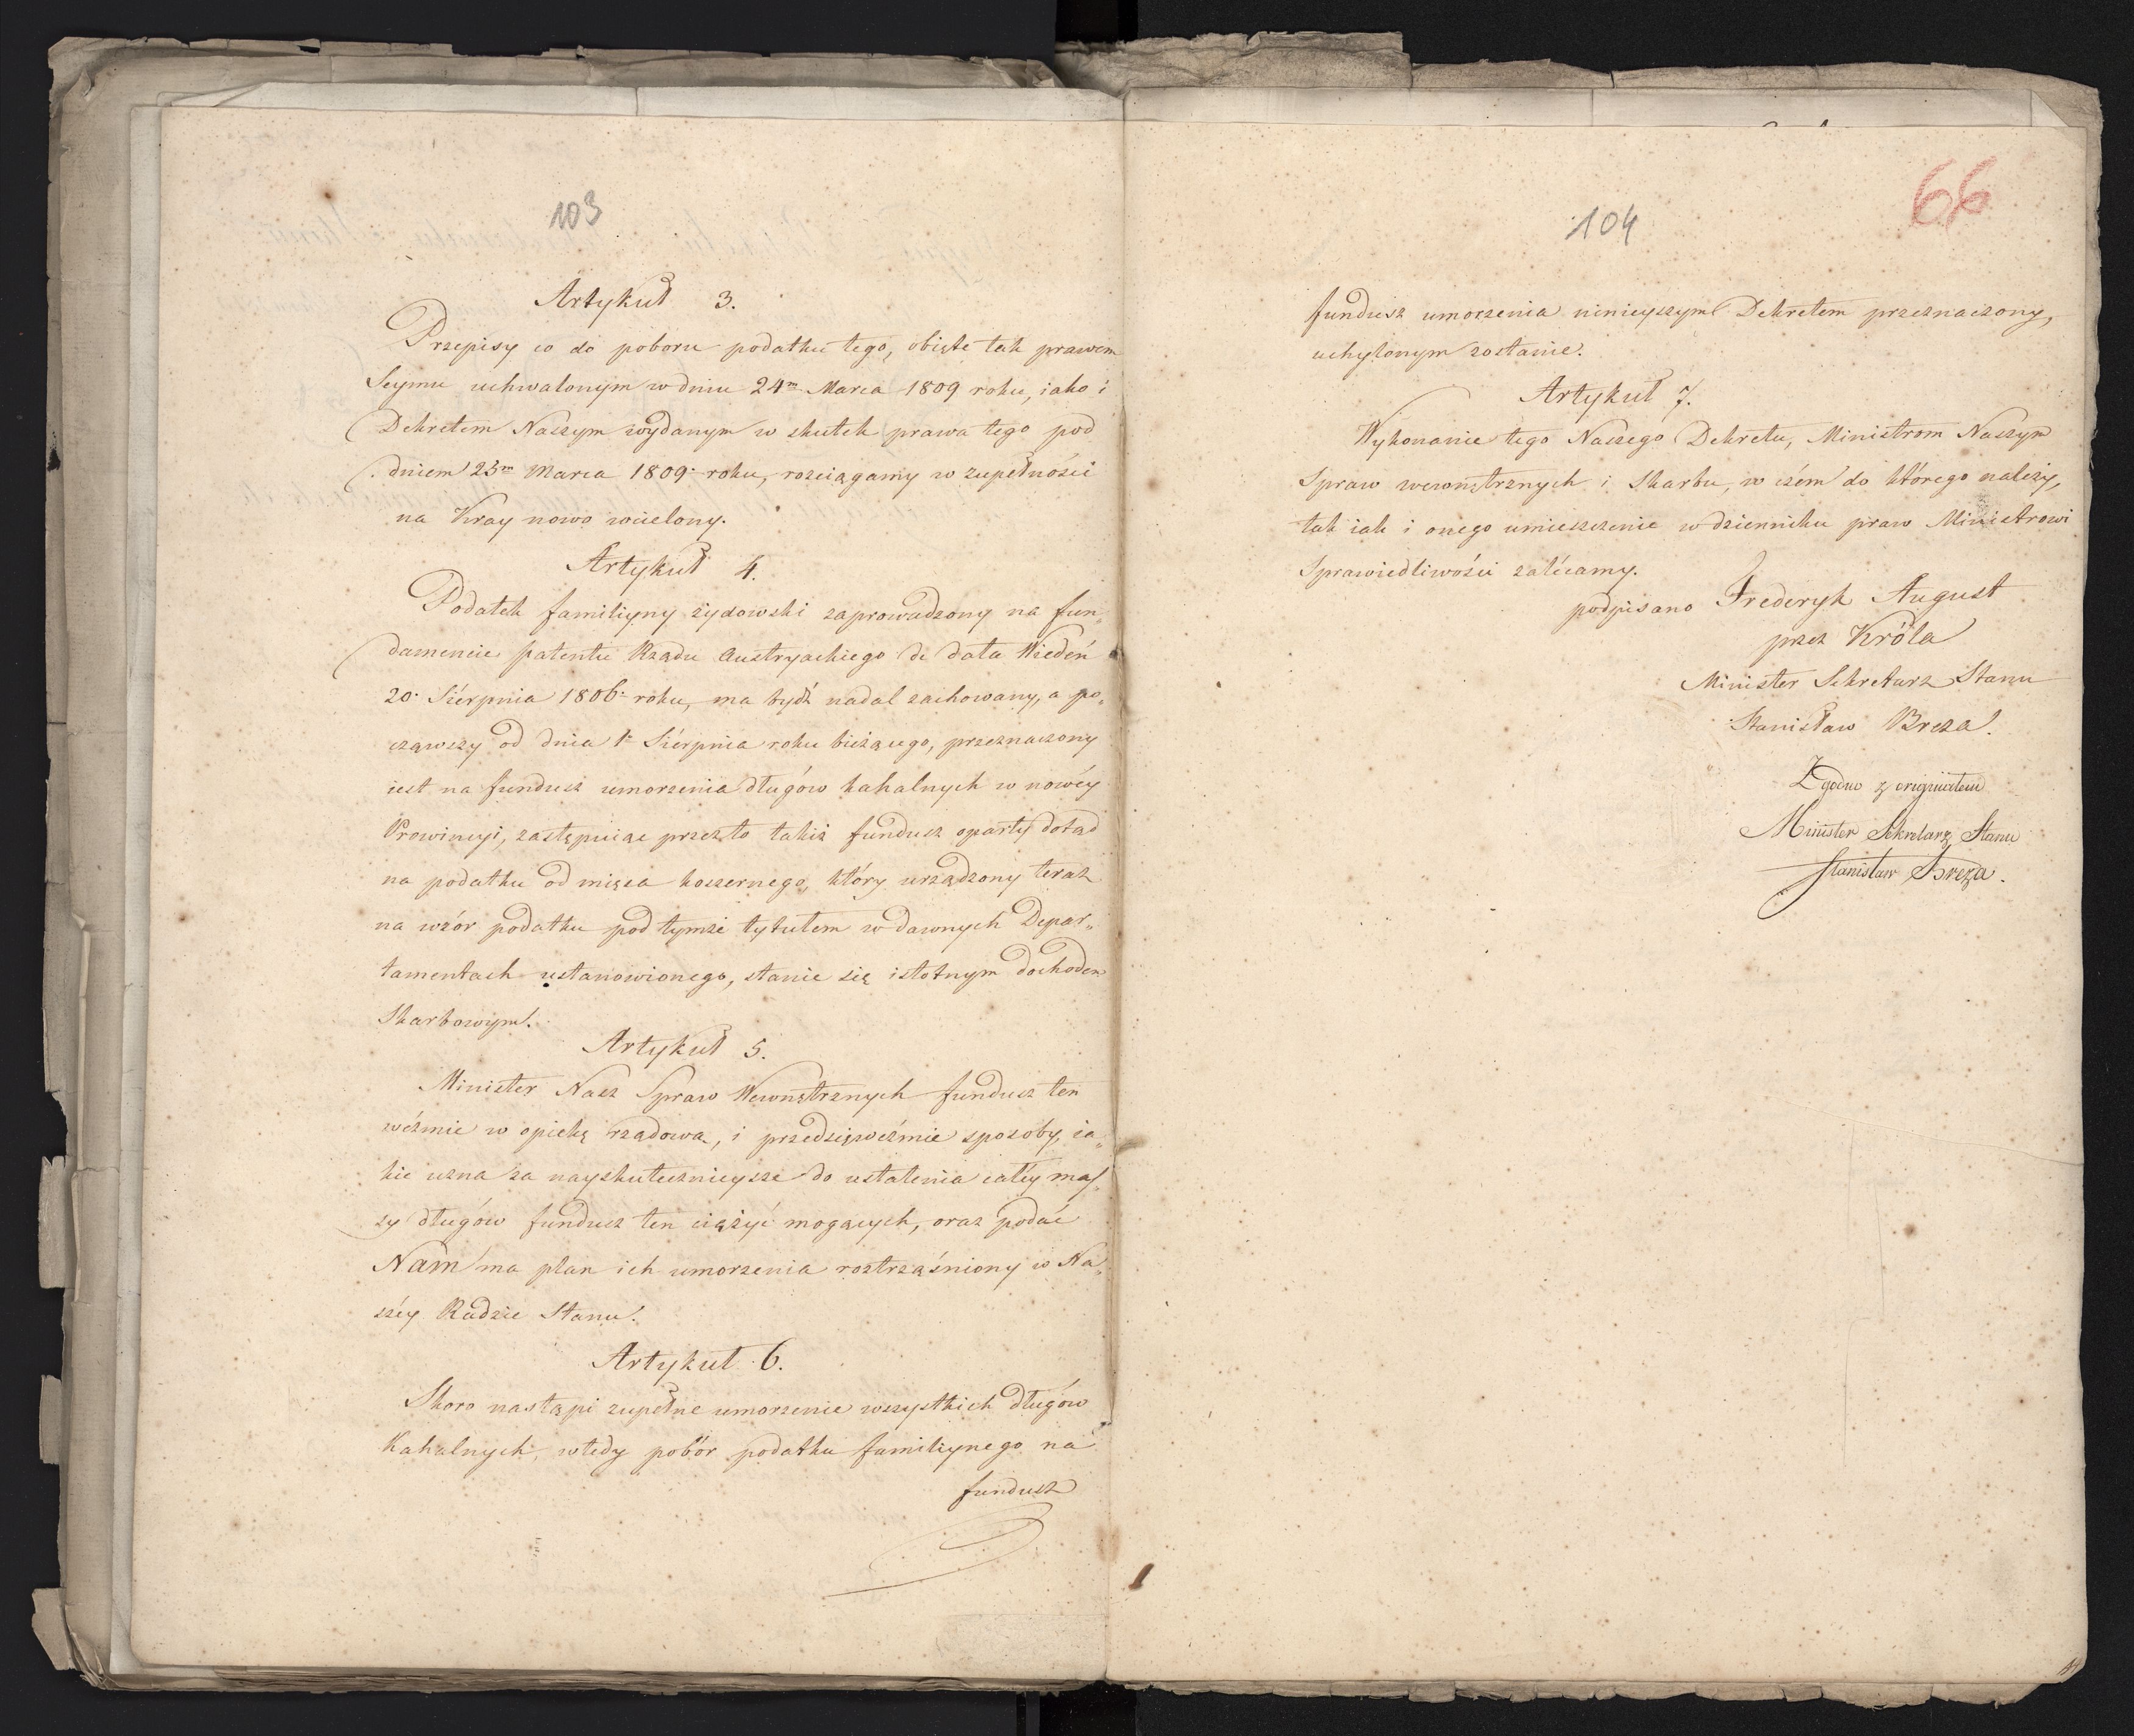 103
Artykuł 3.
Przepisy co do poboru podatku tego, obięte tak prawem
Seymu uchwalonym w dniu 24m Marca 1809 roku, iako i
Dekretem Naszym wydanym w skutek prawa tego pod
dniem 25m Marca 1809. roku, rozciągamy w zupełności
na Kray nowo wcielony.
Artykuł 4.
Podatek familiyny żydowski zaprowadzony na fun„
damencie patentu Rządu Austryackiego de data Wiedeń
20. Sierpnia 1806. roku, ma bydź nadal zachowany, a po„
cząwszy od dnia 1o Sierpnia roku bieżącego, przeznaczony
iest na fundusz umorzenia długów kahalnych w nowéy
Prowincyi, zastępuiąc przezto takiż fundusz oparty dotąd
na podatku od mięsa koszernego, który urządzony teraz
na wzór podatku pod tymże tytułem w dawnych Depar„
tamentach ustanowionego, stanie się istotnym dochodem
Skarbowym.
Artykuł 5.
Minister Nasz Spraw Wewnętrznych fundusz ten
weźmie w opiekę rządową, i przedsięweźmie sposoby, ia„
kie uzna za nayskutecznieysze do ustalenia całéy mas„
sy długów fundusz ten ciążyć mogących, oraz podać
Nam ma plan ich umorzenia roztrząśniony w Na„
széy Radzie Stanu.
Artykuł 6.
Skoro nastąpi zupełne umorzenie wszystkich długów
Kahalnych, wtedy pobór podatku familiynego na
fundusz
104
66
fundusz umorzenia ninieyszym Dekretem przeznaczony,
uchylonym zostanie.
Artykuł 7.
Wykonanie tego Naszego Dekretu, Ministrom Naszym
Spraw wewnętrznych i Skarbu, w czém do którego należy,
tak iak i onego umieszczenie w dzienniku praw Ministrowi
Sprawiedliwości zalécamy.
podpisano Frederyk August
przez Króla
Minister Sekretarz Stanu
Stanisław Breza.
Zgodno z originałem
Minister Sekretarz Stanu
Stanisław Breza.